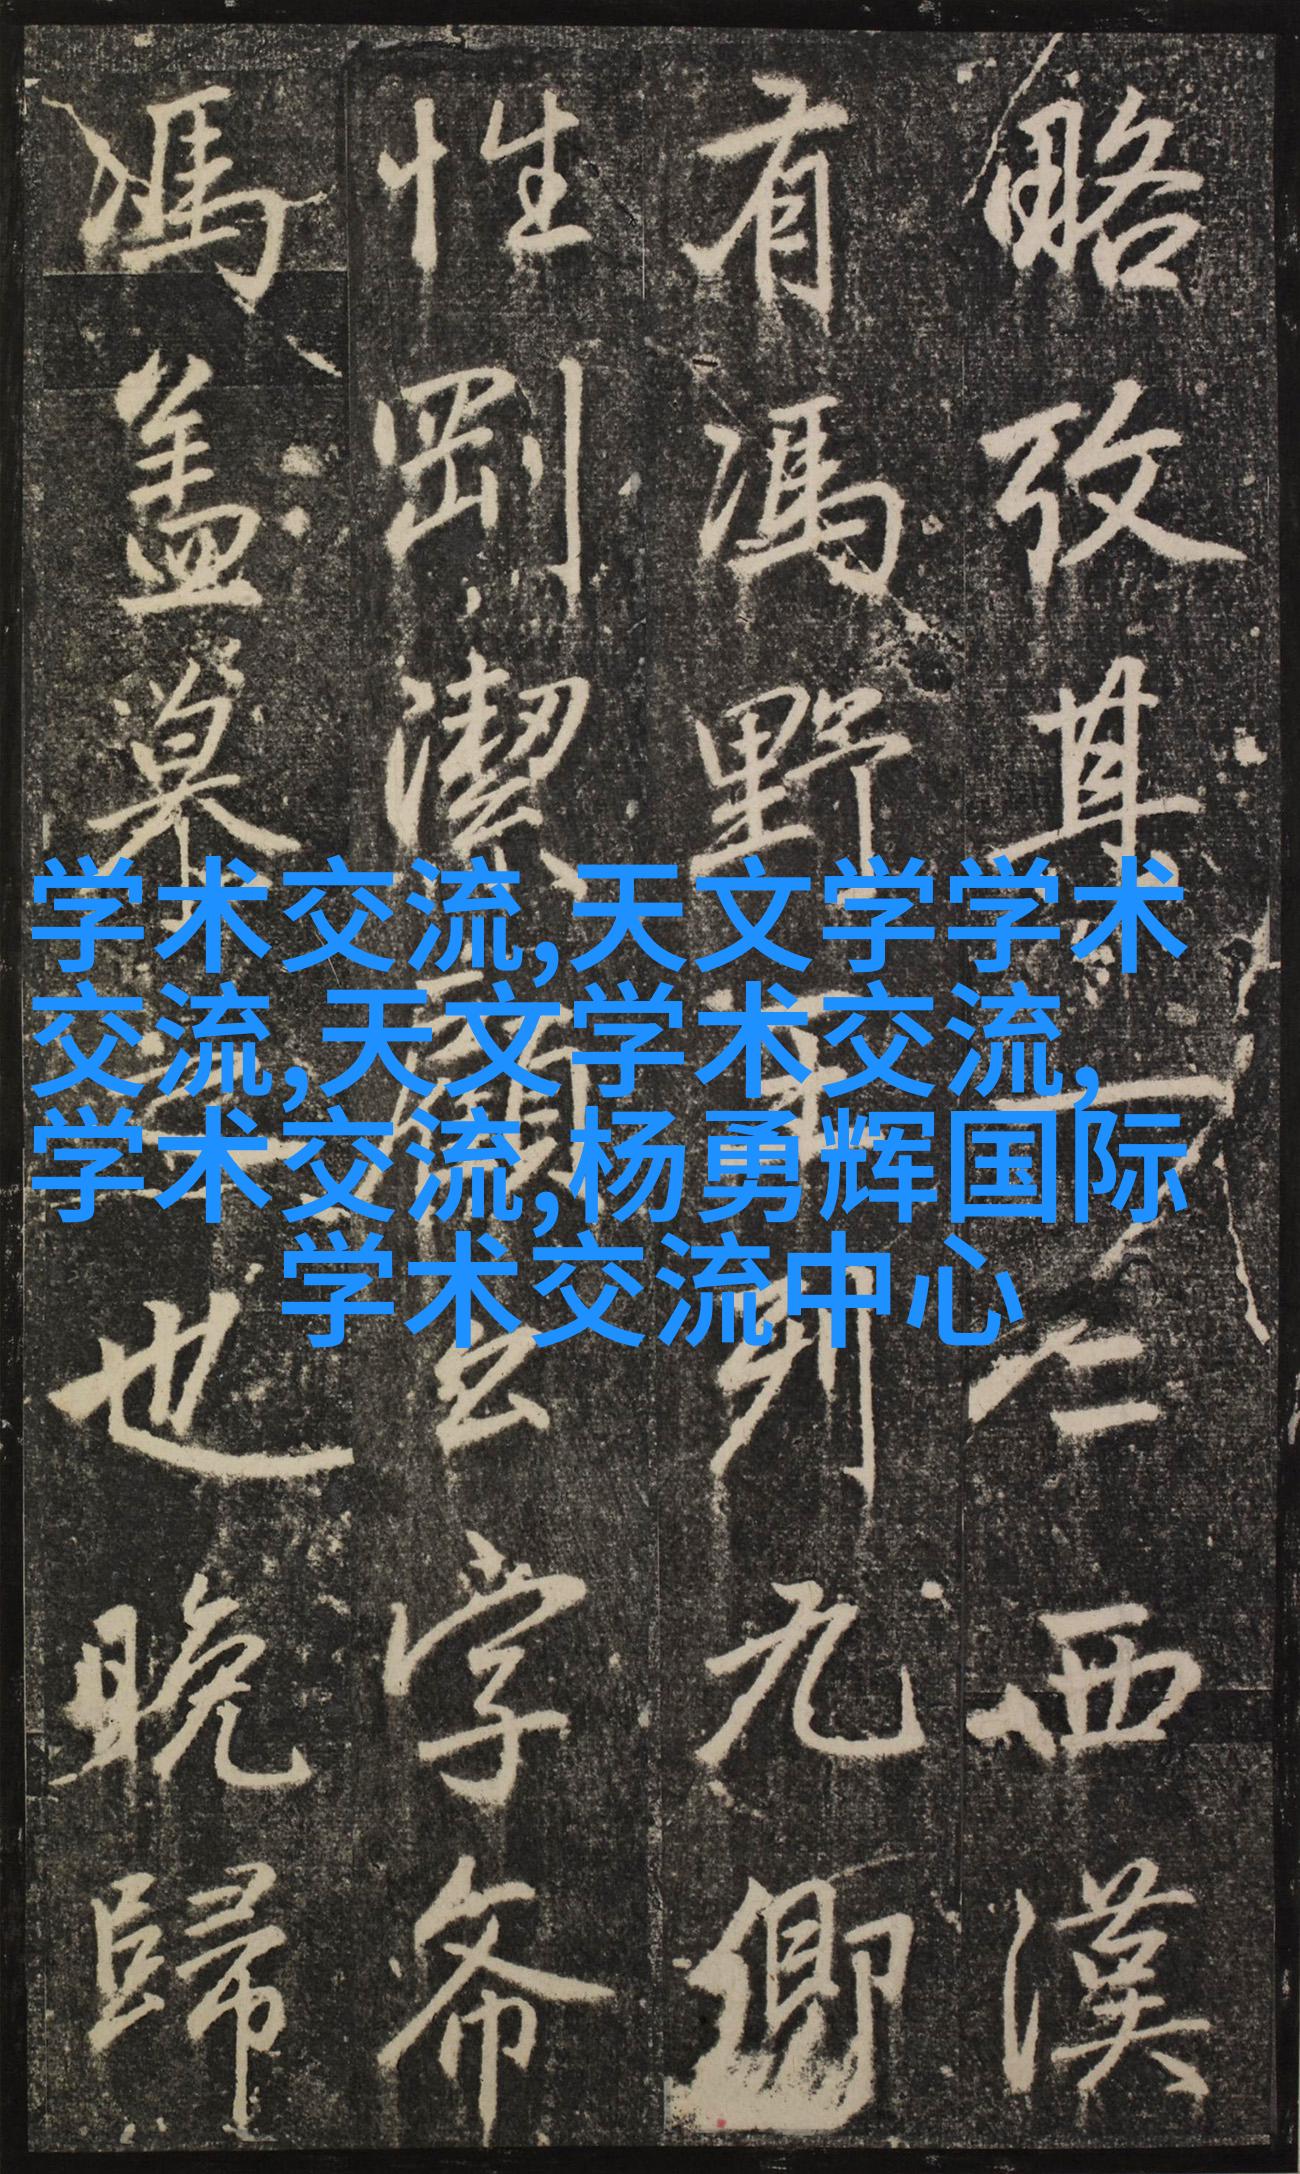 略攷其一二西漢
有馮野王列九卿
性剛潔云字
馮盖慕之也晚歸
学术交流,天文学学术
交流,天文学术交流,
学术交流,杨勇辉国际
学术交流中心